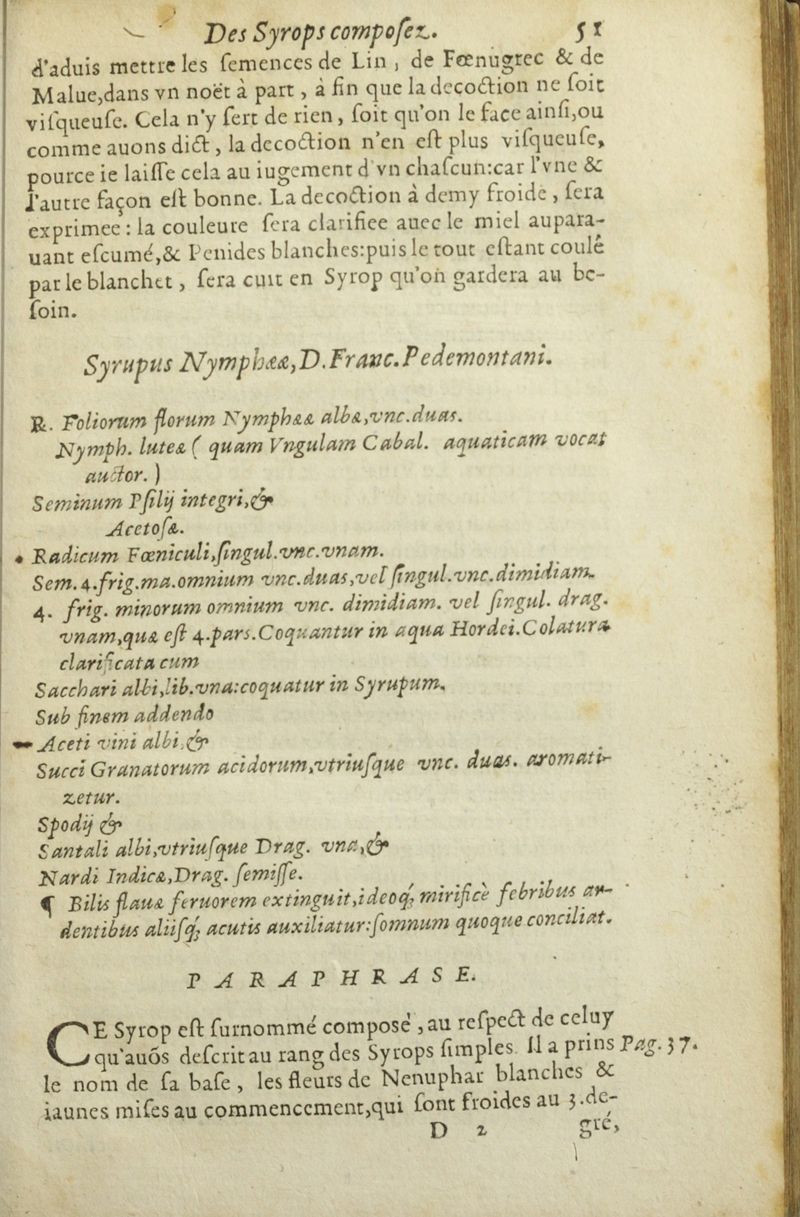 Des Syrops composez. 51
d'aduis mettre les semences de Lin, de Fœnugrec & de
Malue,dans vn noët à part, à fin que la decoction ne soit
visqueuse. Cela n'y sert de rien, soit qu'on le face ainsi,ou
comme auons dict, la decoction n'en est plus visqueuse,
pource ie laisse cela au iugement d'vn chascun:car l'vne &
l'autre façon est bonne. La decoction à demy froide, sera
exprimee: la couleure sera clarifiee auec le miel aupara-
uant escumé,& Penides blanches:puis le tout estant coulé
par le blanchet, sera cuit en Syrop qu'on gardera au be-
soin.
Syrupus Nymphææ,D.Franc.Pedemontani.
℞. Foliorum florum Nymphææ albæ,vnc.duas.
Nymph. luteæ ( quam Vngulam Cabal. aquaticam vocat
auctor. )
Seminum Psilij integri,&
Acetosæ.
Radicum Fœniculi,singul.vnc.vnam.
Sem.4.frig.ma.omnium vnc.duas,vel singul.vnc.dimidiam.
4. frig. minorum omnium vnc. dimidiam. vel singul. drag.
vnam,quæ est 4.pars.Coquantur in aqua Hordei.Colatura
clarificata cum
Sacchari albi,lib.vna:coquatur in Syrupum,
Sub finem addendo
Aceti vini albi,&
Succi Granatorum acidorum,vtriusque vnc. duas. aromati-
zetur.
Spodij &
Santali albi,vtriusque Drag. vna,&
Nardi Indicæ,Drag. semisse.
¶ Bilis flauæ feruorem extinguit,ideoq; mirificè febribus ar-
dentibus aliisq; acutis auxiliatur:somnum quoque conciliat.
PARAPHRASE.
CE Syrop est surnommé composé, au respect de celuy
qu'auõs descrit au rang des Syrops simples. Il a prins Pag.37.
le nom de sa base, les fleurs de Nenuphar blanches &
iaunes mises au commencement,qui sont froides au 3.de-
D 2 gré,